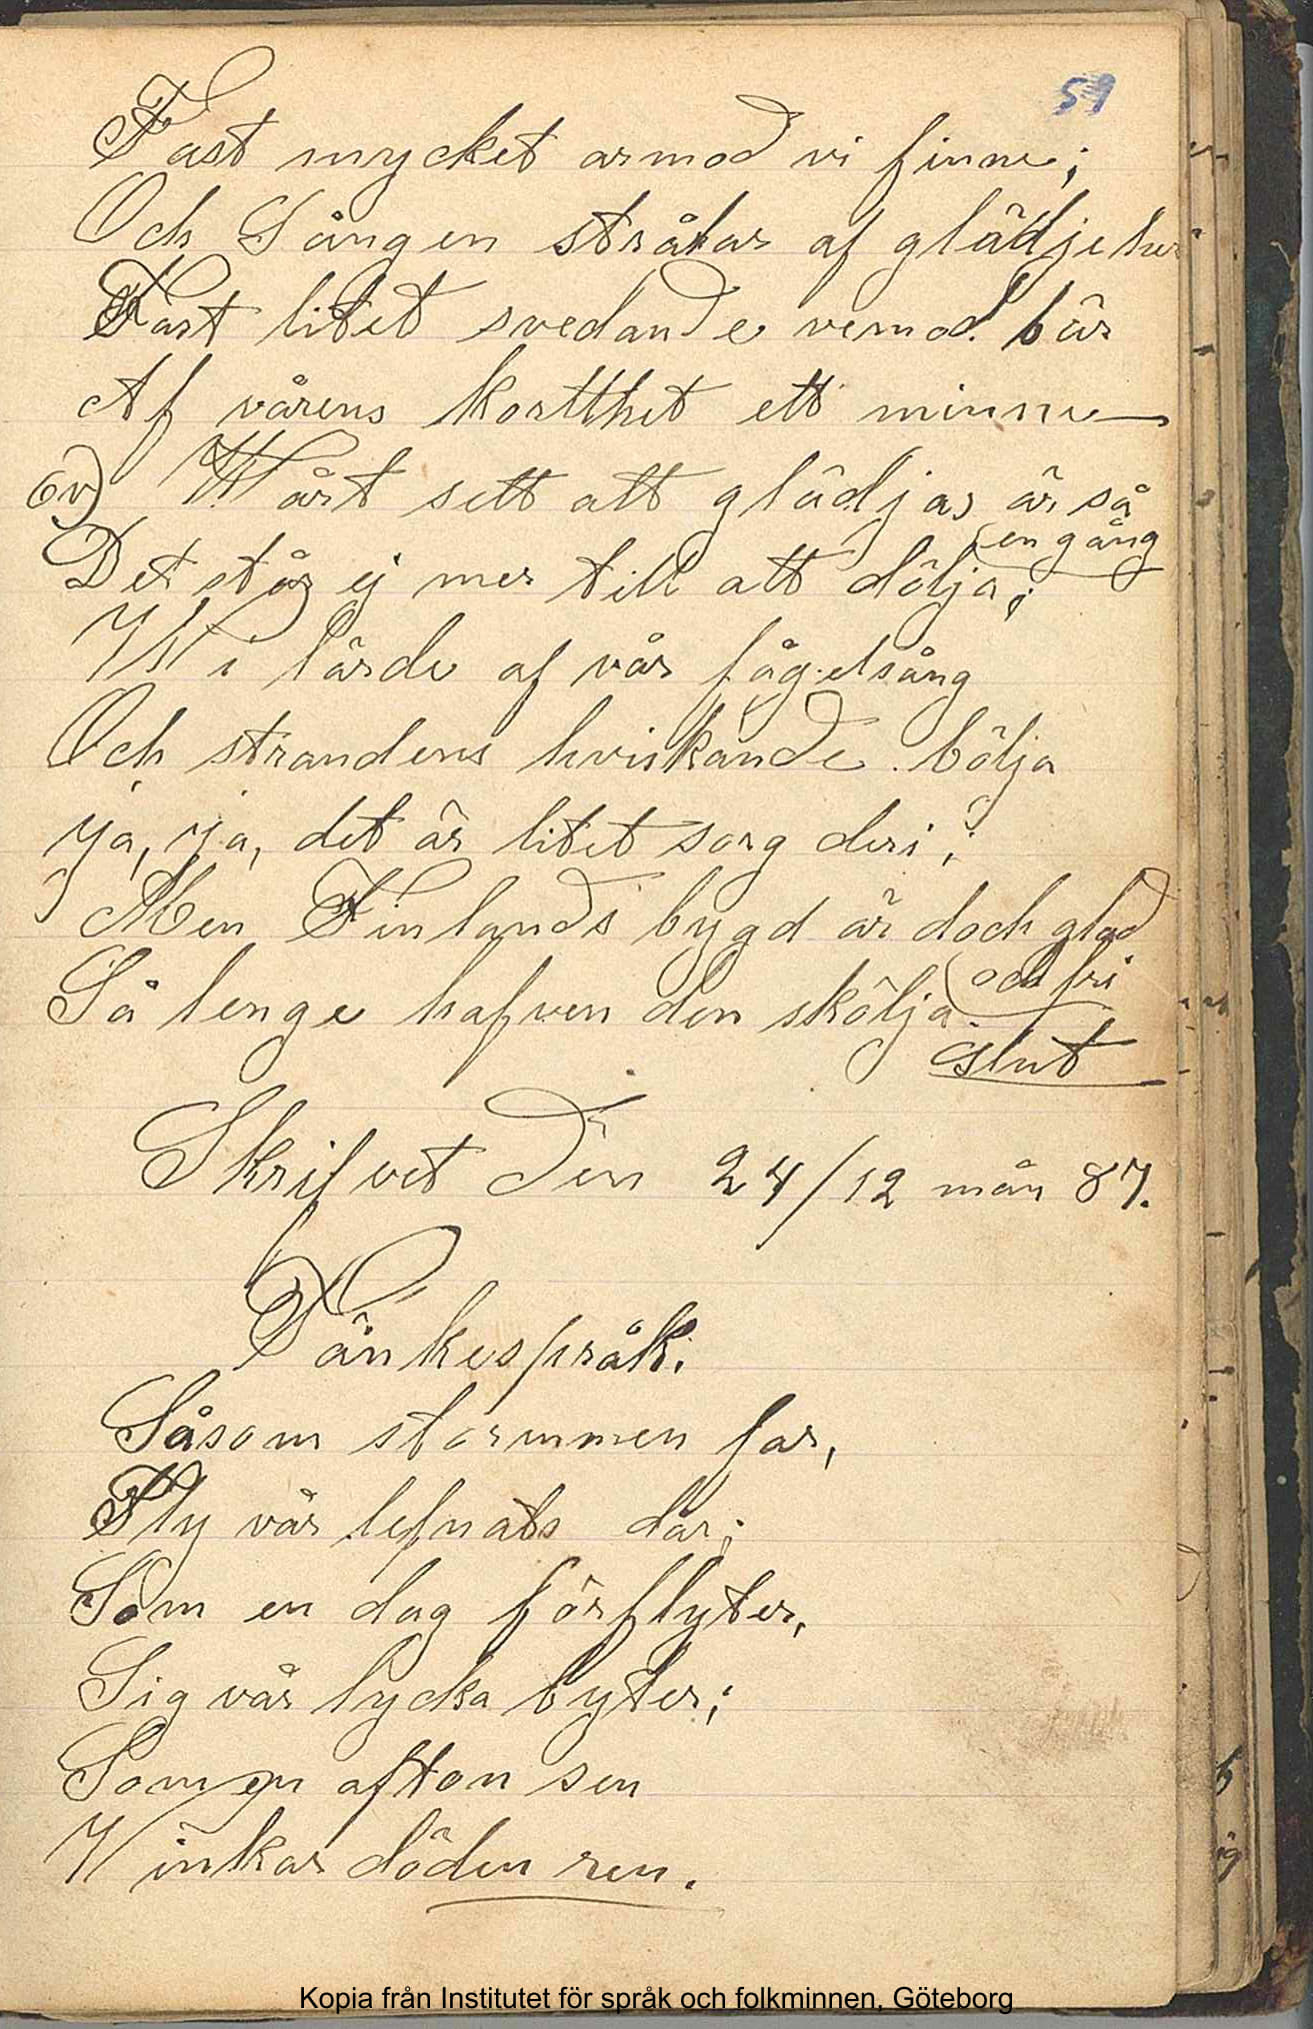 51
Fast mycket armod vi finne;
Och Sången strålar af glädje
Fast litet svedande vemod bär
Af vårens kortthet ett minne
6v) Wårt sett att glädjas är så
(en gång
Det står ej mer till att dölja;
Wi lärde af vår fågelsång
Och strandens hviskande bölja
ja, ja, det är litet sorg deri;
Men Finlands bygd är doch glad
(och fri
Så lenge hafven den skölja.
Slut
Skrifvet den 24/12 mån 87.
Tänkespråk.
Såsom stormmen far,
Fly vår lefnats dar;
Som en dag förflyter,
Sig vår lycka byter;
Som en afton sen
Vinkar döden ren.
Kopia från Institutet för språk och folkminnen, Göteborg